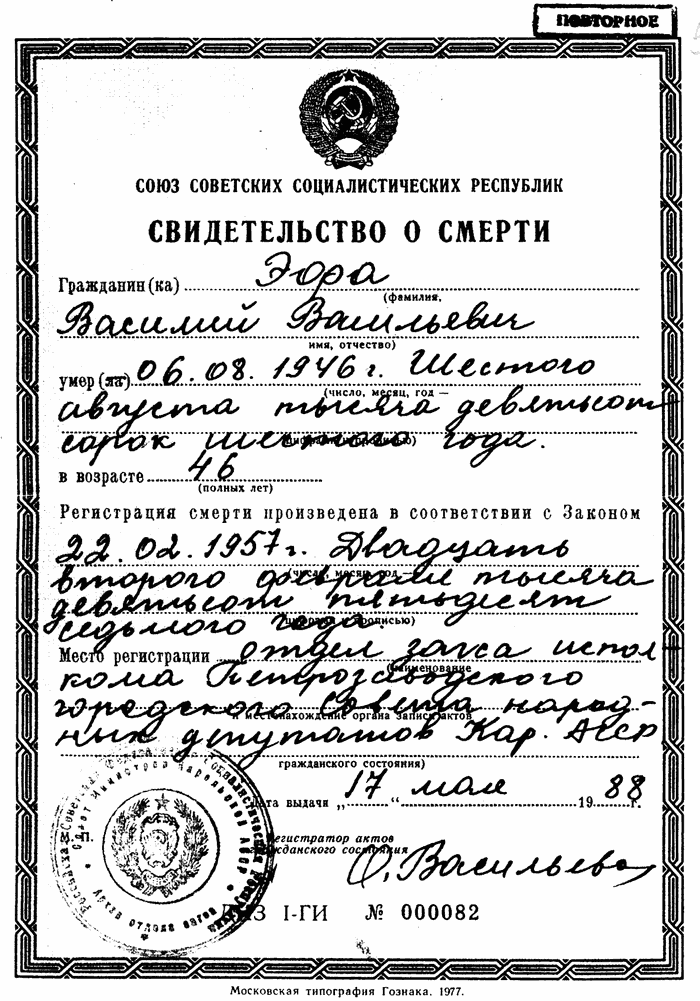 ПОВТОРНОЕ
СОЮЗ СОВЕТСКИХ СОЦИАЛИСТИЧЕСКИХ РЕСПУБЛИК
СВИДЕТЕЛЬСТВО О СМЕРТИ
Гражданин(ка) Эора
(фамилия,
Василий Васильевич
имя, отчество)
умер(ла) 06.08.1946 г. Шестого
(число, месяц, год —
августа тысяча девятьсот
сорок шестого года.
в возрасте 46
(полных лет)
Регистрация смерти произведена в соответствии с Законом
22.02.1957 г. Двадцать
второго февраля тысяча
девятьсот пятьдесят
седьмого года.
Место регистрации отдел загса испол-
(наименование
кома Петрозаводского
городского Совета народ-
и местонахождение органа записи актов
ных депутатов Кар. АССР
гражданского состояния)
дата выдачи „17“ мая 1988 г.
М. П.
Регистратор актов
гражданского состояния
О. Васильева
I-ГИ № 000082
Московская типография Гознака. 1977.